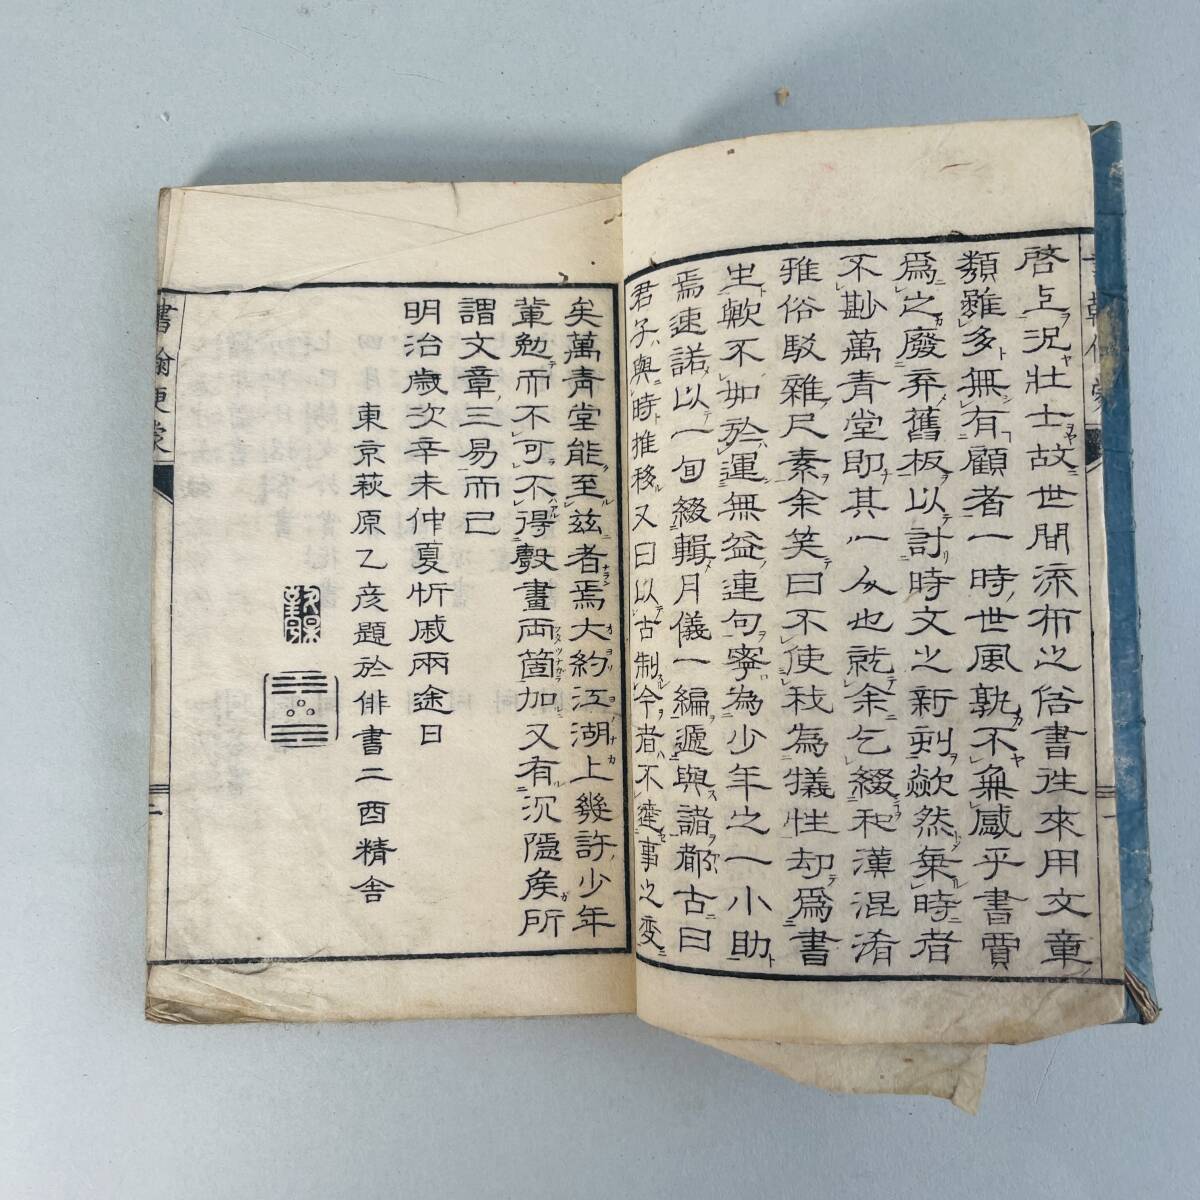 啓上況壮士故世間流布之俗書往来用文章
類雖多無有顧者一時世風孰不無感乎書賈
為之廃弃舊板以討時文之新刻歘然棄時者
不尠萬青堂即其一人也就余乞綴和漢混淆
雅俗駁雜尺素余笑曰不使我為犠牲却為書
生歟不如於運無益連句寧為少年之一小助
焉速諾以一旬綴輯月儀一編遞與諸都古曰
君子與時推移又曰以古制今者不達事之変
矣萬青堂能至茲者焉大約江湖上幾許少年
輩勉而不可不得彀畫両箇加又有沉隠矦所
謂文章三易而已
明治歳次辛未仲夏忻戚兩途日
東京萩原乙彦題於俳書二酉精舎
書翰便蒙
一